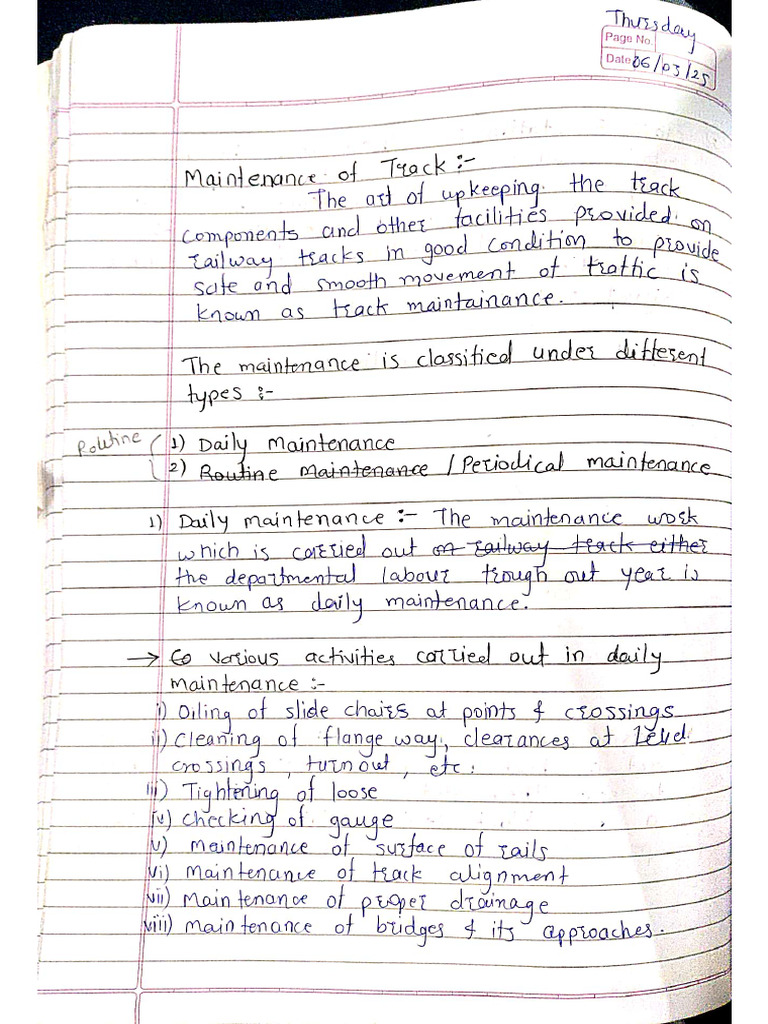 Thursday
Page No.
Date 06/03/25
Maintenance of Track :-
The art of upkeeping the track
components and other facilities provided on
railway tracks in good condition to provide
safe and smooth movement of traffic is
known as track maintainance.
The maintenance is classified under different
types :-
Routine
1) Daily Maintenance
2) Routine Maintenance / Periodical maintenance
1) Daily maintenance :- The maintenance work
which is carried out on railway track either
the departmental labour trough out year is
known as daily maintenance.
→ Co various activities carried out in daily
maintenance :-
i) Oiling of slide chairs at points & crossings
ii) Cleaning of flange way, clearances at Level
crossings, turnout, etc.
iii) Tightening of loose
iv) checking of gauge
v) maintenance of surface of rails
vi) maintenance of track alignment
vii) Maintenance of proper drainage
viii) maintenance of bridges & its approaches.